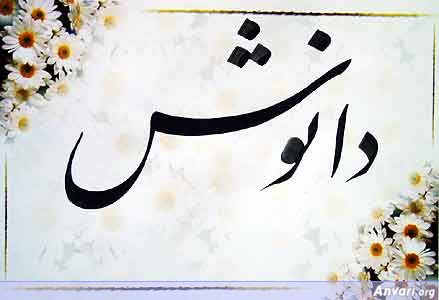 دانوش
Anvari.org